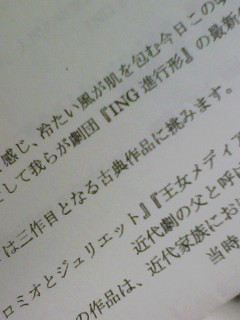 感じ、冷たい風が肌を包む今日この
して我らが劇団『ING進行形』の最新
は三作目となる古典作品に挑みます。
ロミオとジュリエット』『王女メディア
近代劇の父と呼
の作品は、近代家族にお
当時